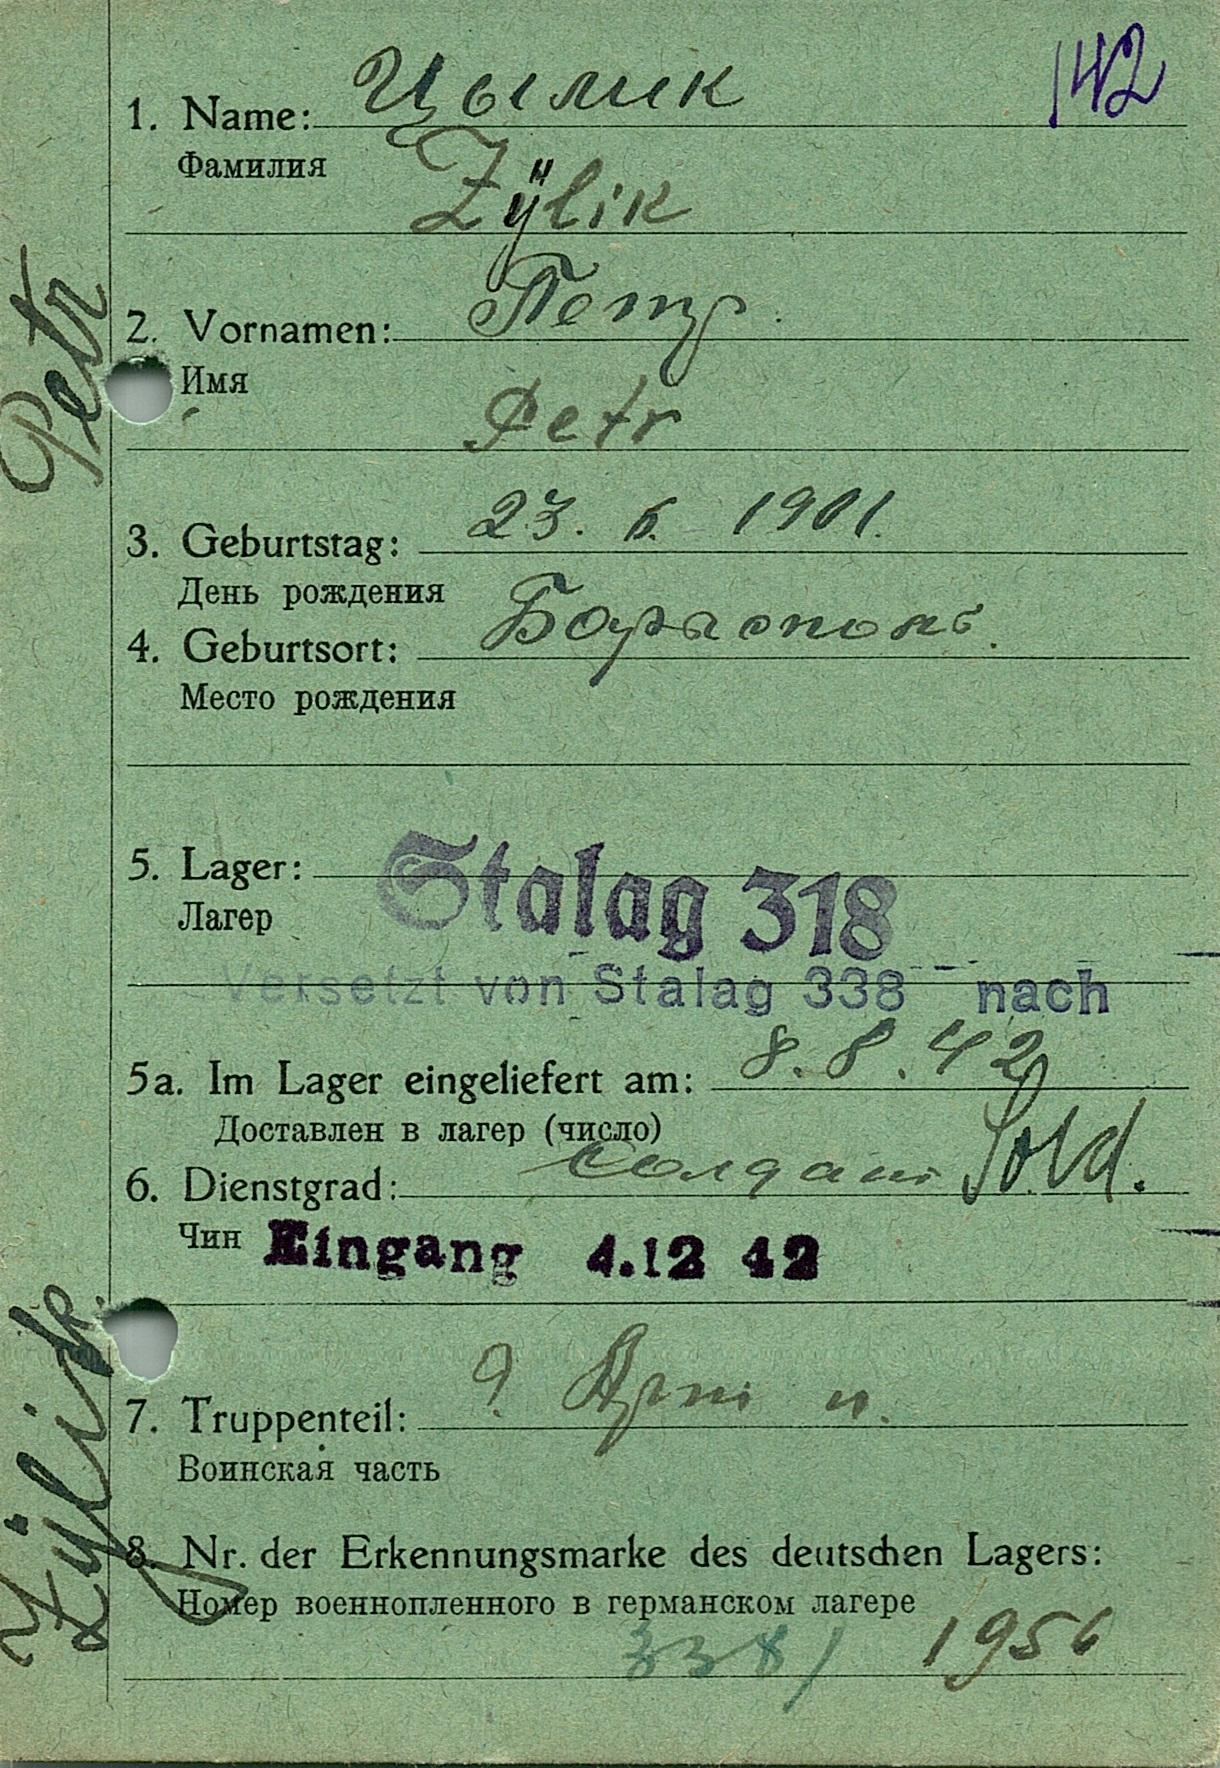 142
1. Name: Цылик
Фамилия
Zÿlik
2. Vornamen: Петр.
Имя
Petr
3. Geburtstag: 23. 6. 1901.
День рождения
4. Geburtsort: Борисполь.
Место рождения
5. Lager: Stalag 318
Лагер
Versetzt von Stalag 338 nach
5a. Im Lager eingeliefert am: 8.8.42
Доставлен в лагер (число)
6. Dienstgrad: Солдат Sold.
Чин Eingang 4.12 42
7. Truppenteil: 9
Воинская часть
8. Nr. der Erkennungsmarke des deutschen Lagers:
Номер военнопленного в германском лагере
338/ 1956
Petr
Zÿlik.